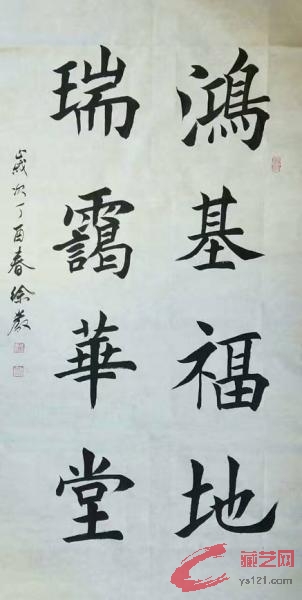 鸿基福地
瑞靄華堂
歲次丁酉春徐嚴
藏艺网
ys121.com